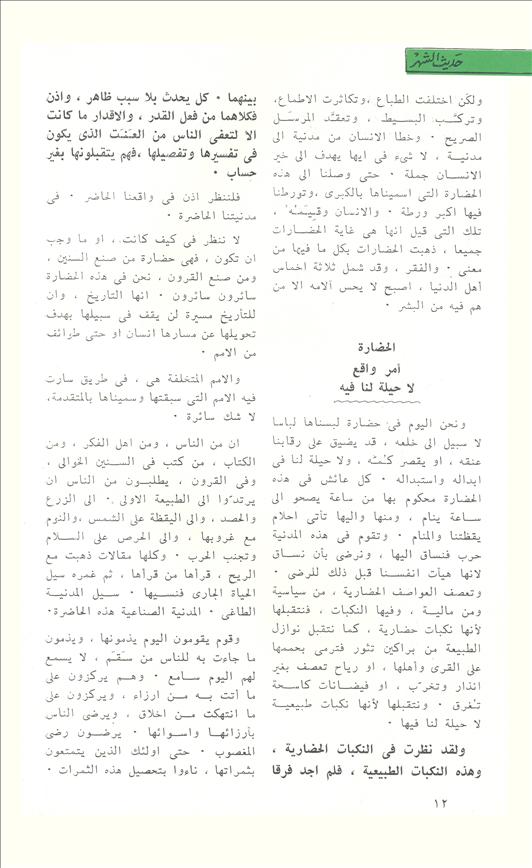 حديث الشهر
ولكن اختلفت الطباع ، وتكاثرت الاطماع ،
وتركب البسيط ، وتعقد المرسل
الصريح . وخطا الانسان من مدنية الى
مدنية ، لا شيء في ايها يهدف الى خير
الانسان جملة . حتى وصلنا الى هذه
الحضارة التي اسميناها بالكبرى ، وتورطنا
فيها اكبر ورطة . والانسان وقيمته ،
تلك التي قيل انها هي غاية الحضارات
جميعا ، ذهبت الحضارات بكل ما فيها من
معنى . والفقر ، وقد شمل ثلاثة اخماس
أهل الدنيا ، اصبح لا يحس آلامه الا من
هم فيه من البشر .
الحضارة
أمر واقع
لا حيلة لنا فيه
ونحن اليوم في حضارة لبسناها لباسا
لا سبيل الى خلعه ، قد يضيق على رقابنا
عنقه ، او يقصر كمه ، ولا حيلة لنا في
ابداله واستبداله . كل عائش في هذه
الحضارة محكوم بها من ساعة يصحو الى
ساعة ينام ، ومنها واليها تأتي احلام
يقظتنا والمنام . وتقوم في هذه المدنية
حرب فنساق اليها ، ونرضى بأن نساق
لانها هيأت انفسنا قبل ذلك للرضى .
وتعصف العواصف الحضارية ، من سياسية
ومن مالية ، وفيها النكبات ، فنتقبلها
لأنها نكبات حضارية ، كما نتقبل نوازل
الطبيعة من براكين تثور فترمى بحممها
على القرى وأهلها ، او رياح تعصف بغير
انذار وتخرب ، او فيضانات كاسحة
تغرق . ونتقبلها لأنها نكبات طبيعية
لا حيلة لنا فيها .
ولقد نظرت في النكبات الحضارية ،
وهذه النكبات الطبيعية ، فلم اجد فرقا
بينهما . كل يحدث بلا سبب ظاهر ، واذن
فكلاهما من فعل القدر ، والاقدار ما كانت
الا لتعفى الناس من العنت الذى يكون
في تفسيرها وتفصيلها ، فهم يتقبلونها بغير
حساب .
فلننظر اذن في واقعنا الحاضر . في
مدنيتنا الحاضرة .
لا ننظر في كيف كانت ، او ما وجب
ان تكون ، فهي حضارة من صنع السنين ،
ومن صنع القرون ، نحن في هذه الحضارة
سائرون سائرون . انها التاريخ ، وان
للتأريخ مسيرة لن يقف في سبيلها بهدف
تحويلها عن مسارها انسان او حتى طرائف
من الامم .
والامم المتخلفة هي ، في طريق سارت
فيه الامم التي سبقتها وسميناها بالمتقدمة،
لا شك سائرة .
ان من الناس ، ومن اهل الفكر ، ومن
الكتاب ، من كتب في السنين الخوالى ،
وفى القرون ، يطلبون من الناس ان
يرتدوا الى الطبيعة الاولى . الى الزرع
والحصد ، والى اليقظة على الشمس ، والنوم
مع غروبها ، والى الحرص على السلام
وتجنب الحرب . وكلها مقالات ذهبت مع
الريح ، قرأها من قرأها ، ثم غمره سيل
الحياة الجارى فنسيها . سيل المدنية
الطاغى . المدنية الصناعية هذه الحاضرة.
وقوم يقومون اليوم يذمونها ، ويذمون
ما جاءت به للناس من سقم ، لا يسمع
لهم اليوم سامع . وهم يركزون على
ما أتت به من ارزاء ، ويركزون على
ما انتهكت من اخلاق ، ويرضى الناس
بأرزائها واسوائها . يرضون رضى
المغصوب . حتى اولئك الذين يتمتعون
بثمراتها ، ناءوا بتحصيل هذه الثمرات .
١٢